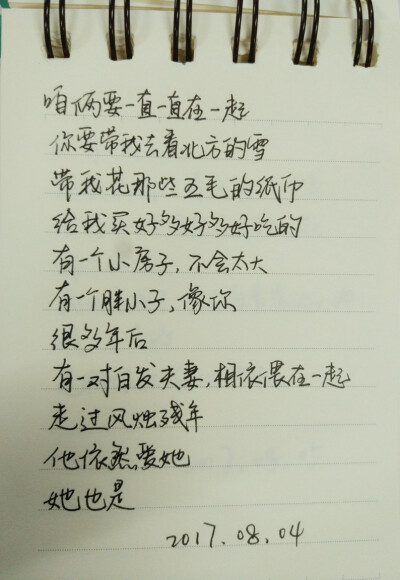 咱俩要一直一直在一起
你要带我去看北方的雪
带我花那些五毛的纸币
给我买好多好多好吃的
有一个小房子,不会太大
有一个胖小子,像你
很多年后
有一对白发夫妻,相依偎在一起
走过风烛残年
他依然爱她
她也是
2017.08.04